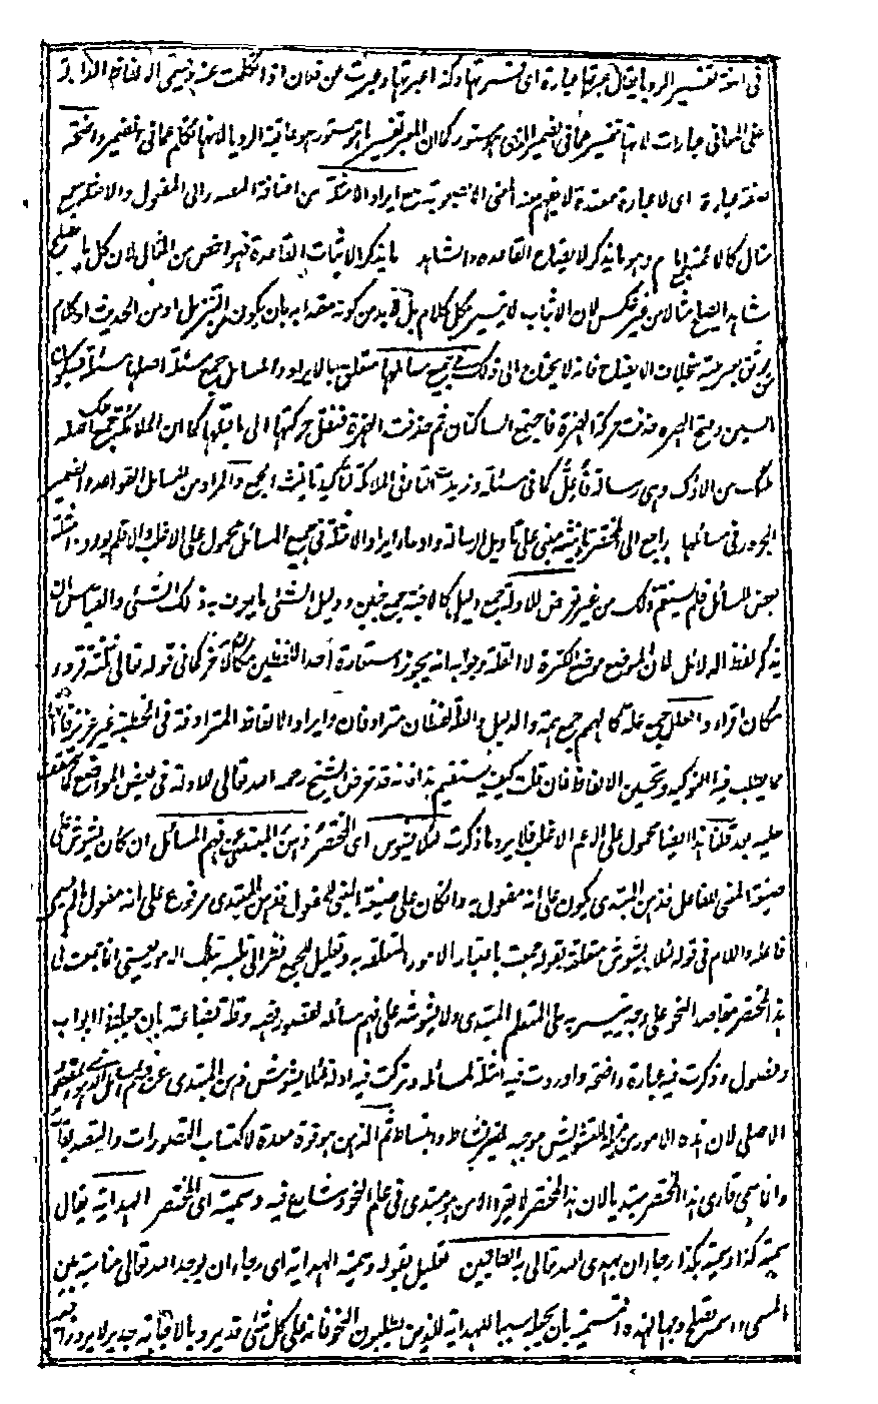 فى اللغة تفسير الرويا يقال عبرتها عبارة اى فسرتها وكذا عبرتها وعبرت عن فلان اذا تكلمت عنه فسمى الالفاظ الدالة
على المعانى عبارات لانها تفسير ما فى الضمير الذى هو مستور كما ان المعبر تفسير ما هو مستور وهو عاقبة الرويا لانها تكلم عما فى الضمير واضحة
صفة عبارة اى لا عبارة معقدة لا يفهم منه المعنى الا بصعوبة مع ايراد الامثلة من اضافة المصدر الى المفعول والامثلة جمع
مثال وهو ما يذكر لايضاح القاعدة والشاهد ما يذكر لاثبات القاعدة فهو اخص من المثال لان كل ما يصلح
شاهدا يصلح مثالا من غير عكس لان الاثبات لا يتيسر بكل كلام بل لا بد من كونه معتدا به بان يكون من التنزيل او من الحديث او كلام
من يوثق بعربيته بخلاف الايضاح فانه لا يحتاج الى ذلك فى جميع مسائلها متعلق بالايراد والمسائل جمع مسئلة اصلها مسئلة بسكون
السين وفتح الهمزة حذفت حركة الهمزة فاجتمع الساكنان ثم حذفت الهمزة فنقل حركتها الى ما قبلها كما ان الملائكة جمع ملك اصله
ملئك من الالوك وهى رسالة وزيدت التاء فى الملائكة لتأكيد تانيث الجمع والمراد من المسائل القواعد والضمير
المجرور فى مسائلها راجع الى المختصر تانيثه مبنى على تاويل الرسالة وادعاء ايراد الامثلة فى جميع المسائل محمول على الاغلب والا فلم يورد امثلة
بعض المسائل فلم يستقم ذلك من غير تعرض للادلة جمع دليل كالاجنة جمع جنين ودليل الشئ ما يعرف به ذلك الشئ والقياس ان
يذكر لفظ الدلائل لان الموضع موضع الكثرة لا القلة وجوابه انه يجوز استعارة احد اللفظين مكان الآخر كما فى قوله تعالى ثلثة قروء
مكان اقراء والعلل جمع علة كالهمم جمع همة والدليل والعلة لفظان مترادفان وايراد الالفاظ المترادفة فى الخطبة غير عزيز فانها
مما يطلب فيه التوكيد وتحسين الالفاظ فان قلت كيف يستقيم هذا فانه قد تعرض الشيخ رحمه الله تعالى للادلة فى بعض المواضع كما ستقف
عليه بعد قلنا هذا ايضا محمول على الاعم الاغلب فلا يرد ما ذكرت لئلا يشوش اى المختصر ذهن المبتدى عن فهم المسائل ان كان يشوش على
صيغة المبنى للفاعل فذهن المبتدى يكون على انه مفعول به وان كان على صيغة المبنى للمفعول فذهن المبتدى مرفوع على انه مفعول ما لم يسم
فاعله واللام فى قوله لئلا يشوش متعلقة بقوله جمعت باعتبار الامور المتعلقة به وتعليل للجمع نظرا الى تلبسه بتلك الامور يعنى انا جمعت فى
هذا المختصر مقاصد النحو على وجه يتيسر به على المتعلم المبتدى ولا يشوشه على فهم مسائله لقصور فهمه وقلة بضاعته بان جعلته ابواب
وفصول وذكرت فيه عبارة واضحة واوردت فيه امثلة لمسائله وتركت فيه ادلة لئلا يشوش ذهن المبتدى عن فهم المسائل الذى هو المقصود
الاصلى لان هذه الامور من مزيلة للتشويش موجبة لمزيد نشاط وانبساط ثم الذهن هو قوة معدة لاكتساب التصورات والتصديقات
وانما سمى قارى هذا المختصر مبتديا لان هذا المختصر لا يقرا الا من هو مبتدى فى علم النحو وشارع فيه وسميته اى المختصر الهداية يقال
سميته كذا وسميته بكذا رجاء ان يهدى الله تعالى به الطالبين تعليل بقوله وسميته الهداية اى رجاء ان يوجد الله تعالى مناسبة بين
المسمى والاسم بان يجعله سببا لهداية للذين يطلبون النحو فانه على كل شئ قدير وبالاجابة جدير